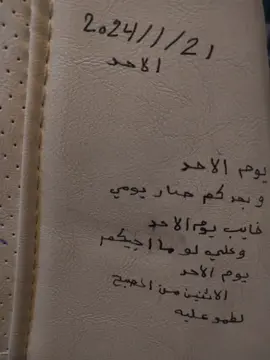 2024/1/21
الاحد
يوم الاحد
وبعدكم صار يومي
خايب يوم الاحد
وعلي لو ما اجيكم
يوم الاحد
الاثنين من الصبح
لطمو عليه